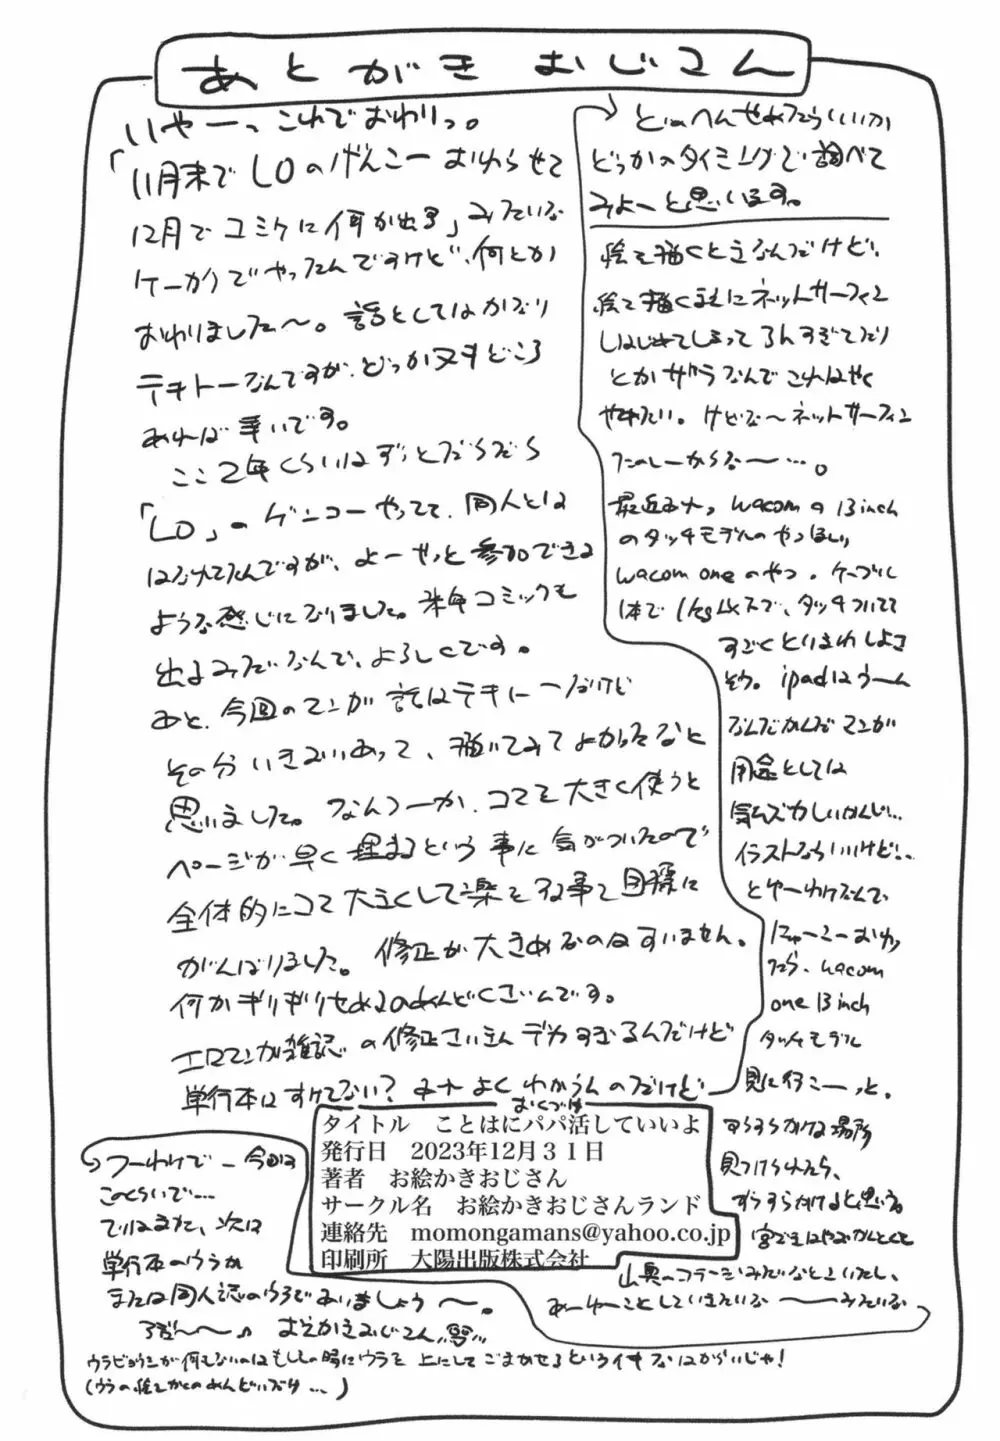 あとがき おじさん
いやーっ これでおわりっ。
「11月末でLOのげんこー おわらせて
12月でコミケに何か出す」みたいな
ケーカクでやってたんですけど、何とか
おわりました〜。話としてはかなり
テキトーなんですが、どっか又キどころ
あれば幸いです。
ここ2年くらいはずっとだらだら
「LO」のゲンコーやってて、同人とは
はなれてたんですが、よーやっと参加できる
ような感じになりました。来年コミックも
出るみたいなんで、よろしくです。
あと、今回のマンガ 話はテキトーだけど
その分いきおいあって、描いてみてよかったなと
思いました。なんつーか、コマを大きく使うと
ページが早く埋まるという事に気がついたので
全体的にコマ大きくして楽をする事を目標に
がんばりました。修正が大きめなのはすいません。
何かギリギリせめるのめんどくさいんです。
エロマンガ雑誌の修正さいきんデカすぎるんだけど
単行本はすけてない? みたいな よくわかうんのだけど
どのへんせめたらいいか
どっかのタイミングで調べて
みよーと思います。
絵を描くときなんだけど、
絵を描くまえにネットサーフィン
しはじめてしまって3んすぎてたり
とかザラなんでこれはやく
やめたい。けどな〜ネットサーフィン
たのしーからな〜…。
最近さナっ wacomの13inch
のタッチモデルのやつほしい
wacom oneのやつ。ケーブル
1本で1kg以下で、タッチついてて
すごくとりまわしよさ
そう。ipadはうーん
なんだかんだマンガ
用途としては
気ムズカしいかんじ…
イラストならいいけど…
とゆーわけなんで、
にゅーこーおわっ
たら、wacom
one 13inch
タッチモデル
見に行こーっと。
すらすらかける場所
見つけられたら、
すらすらかけると思いる。
山奥のコテージみたいなところいたし、
あーゆーことしていきたいな〜みたいな
つーわけで 今回は
このくらいで…
ではまた、次は
単行本のウラか
または同人誌のウラであいましょう〜。
おえかきおじさん
ウラビョウシが何もないのはもしもの時にウラを上にしてごまかせるというイキなはからいじゃ!
(ウラの絵をかくのめんどいだけ…)
おくづけ
タイトル ことはにパパ活していいよ
発行日 2023年12月31日
著者 お絵かきおじさん
サークル名 お絵かきおじさんランド
連絡先 momongamans@yahoo.co.jp
印刷所 大陽出版株式会社